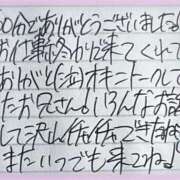 00分でありがとうございました!
お仕事終わりに来てくれて
ありがと(泣)オキニトークして
たお兄さん。いろんなお話
して沢山イチャイチャできたね
またいつでも来てね♡